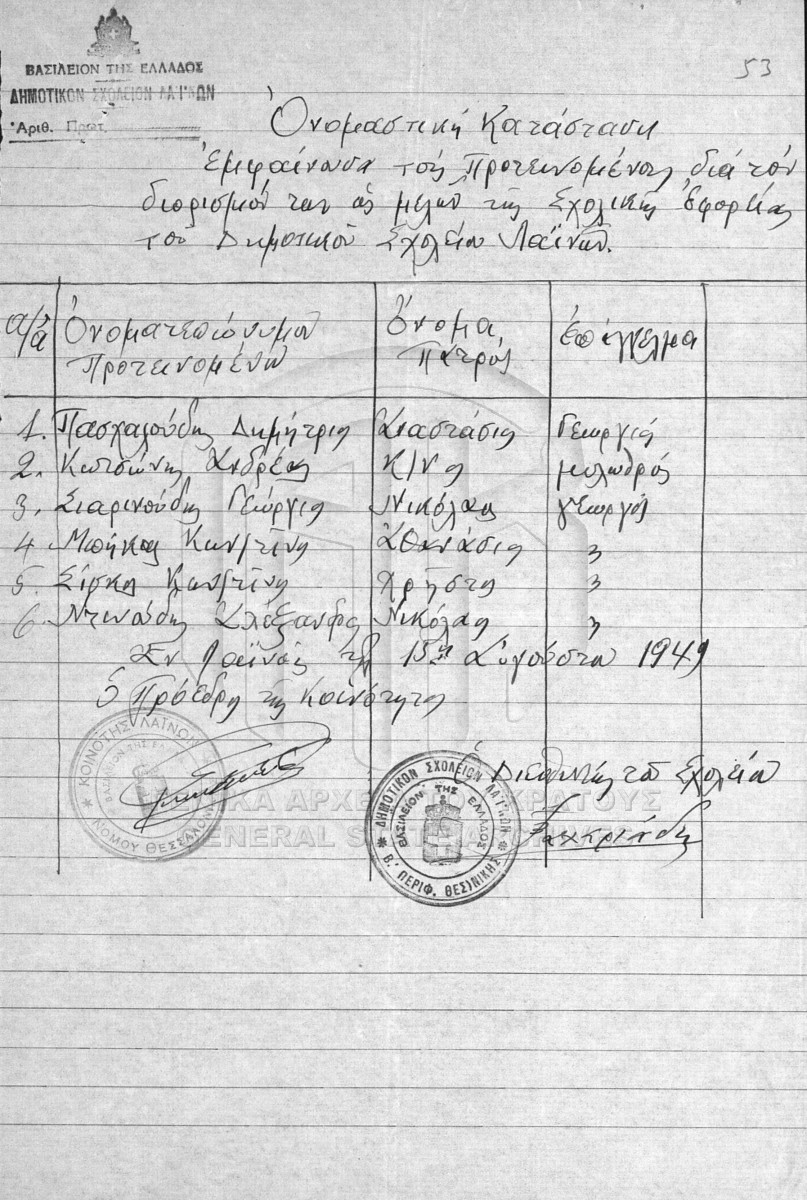 53
ΒΑΣΙΛΕΙΟΝ ΤΗΣ ΕΛΛΑΔΟΣ
ΔΗΜΟΤΙΚΟΝ ΣΧΟΛΕΙΟΝ ΛΑΪΝΩΝ
Ἀριθ. Πρωτ.
Ὀνομαστική Κατάστασις
Ἐμφαίνουσα τούς Προτεινομένους διά τόν
διορισμόν των ὡς μελῶν τῆς Σχολικῆς Ἐφορείας
τοῦ Δημοτικοῦ Σχολείου Λαϊνῶν.
α/α Ὀνοματεπώνυμον Προτεινομένου Ὄνομα Πατρός Ἐπάγγελμα
1. Πασχαλούδης Δημήτριος Ἀναστάσιος Γεωργός
2. Κωτσώνης Ἀνδρέας Κ/νος μυλωθρός
3. Γεώργιος Νικόλαος γεωργός
4 Κων/τῖνος Ἀθανάσιος "
5. Κων/τῖνος Χρῆστος "
6. Ἀλέξανδρος Νικόλαος "
Ἐν Λαϊνοῖς τῇ 15ῃ Αὐγούστου 1949
Ὁ Πρόεδρος τῆς Κοινότητος
Ὁ Διευθυντής τοῦ Σχολείου
ΚΟΙΝΟΤΗΣ ΛΑΪΝΩΝ
ΝΟΜΟΥ ΘΕΣΣΑΛΟΝΙΚΗΣ
ΔΗΜΟΤΙΚΟΝ ΣΧΟΛΕΙΟΝ ΛΑΪΝΩΝ
ΒΑΣΙΛΕΙΟΝ ΤΗΣ ΕΛΛΑΔΟΣ
Β.' ΠΕΡΙΦ. ΘΕΣ)ΝΙΚΗΣ
ΓΕΝΙΚΑ ΑΡΧΕΙΑ ΤΟΥ ΚΡΑΤΟΥΣ
GENERAL STATE ARCHIVES